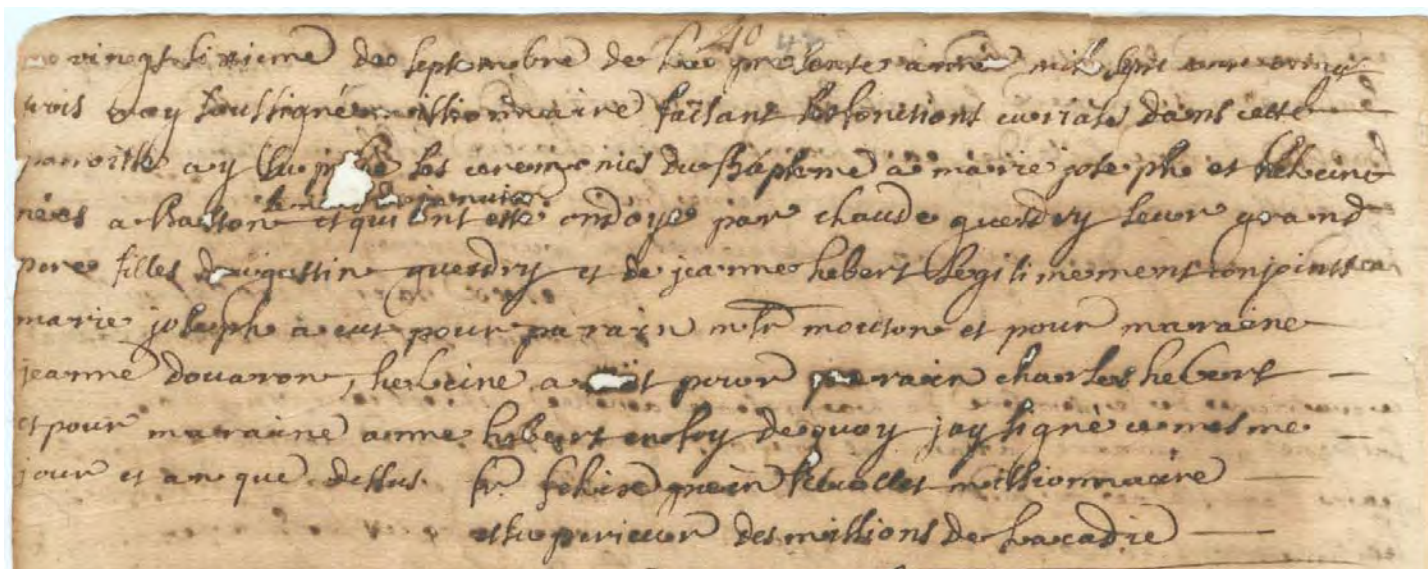 40
vingt sixieme de septembre de la presente année mil sept cent vingt
trois moy soussigné missionnaire faisant les fonctions curiales dans cette
paroisse ay les ceremonies du Bapteme a marie josephe et heleine
nées a Baston et qui ont esté ondoyé par chaude guerdry leur grand
pere filles d'augustin guerdry et de jeanne hebert legitimement conjoints
marie josephe a eut pour parain mouton et pour maraine
jeanne douaron, heleine a pour parain charles hebert
et pour maraine anne hebert en foy de quoy jay signé ce mesme
jour et an que dessus fr. felix pain missionnaire
et superieur des missions de Lacadie